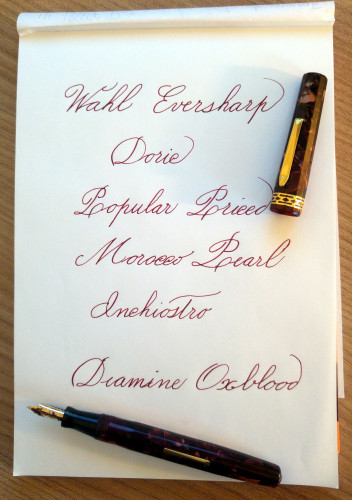 Wahl Eversharp
Dorie
Popular Priced
Morocco Pearl
Inchiostro
Diamine Oxblood